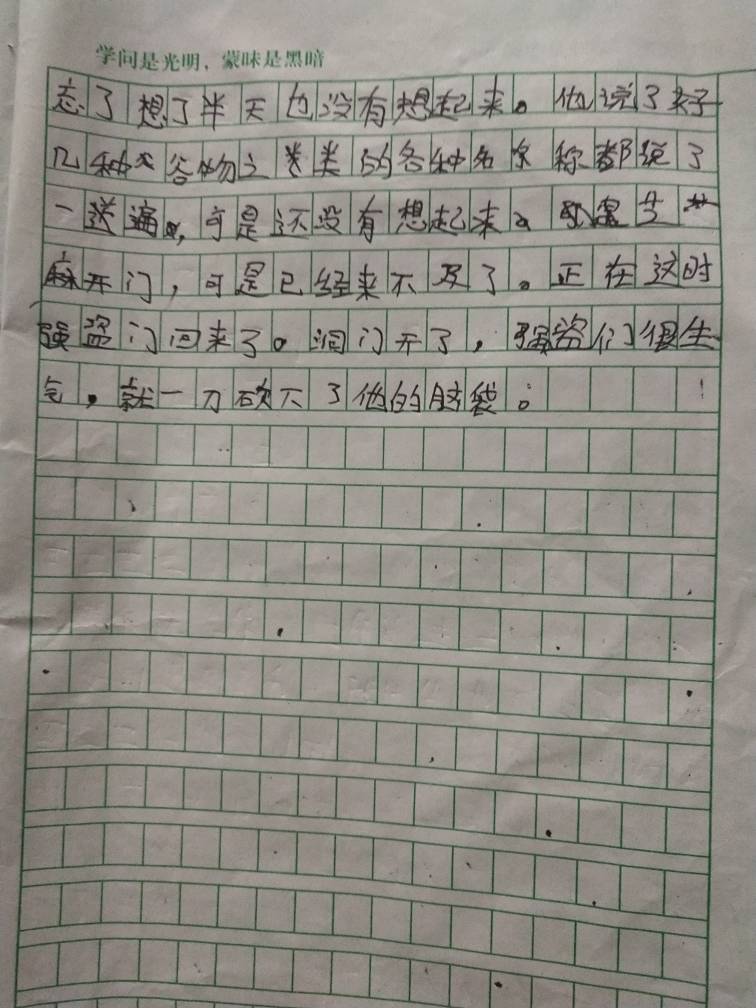 学问是光明，蒙昧是黑暗
忘了想了半天也没有想起来。他说了好
几种谷物之类的各种名称都说了
一遍，可是还没有想起来。是芝
麻开门，可是已经来不及了。正在这时
强盗门回来了。洞门开了，强盗们很生
气，就一刀砍下了他的脑袋。